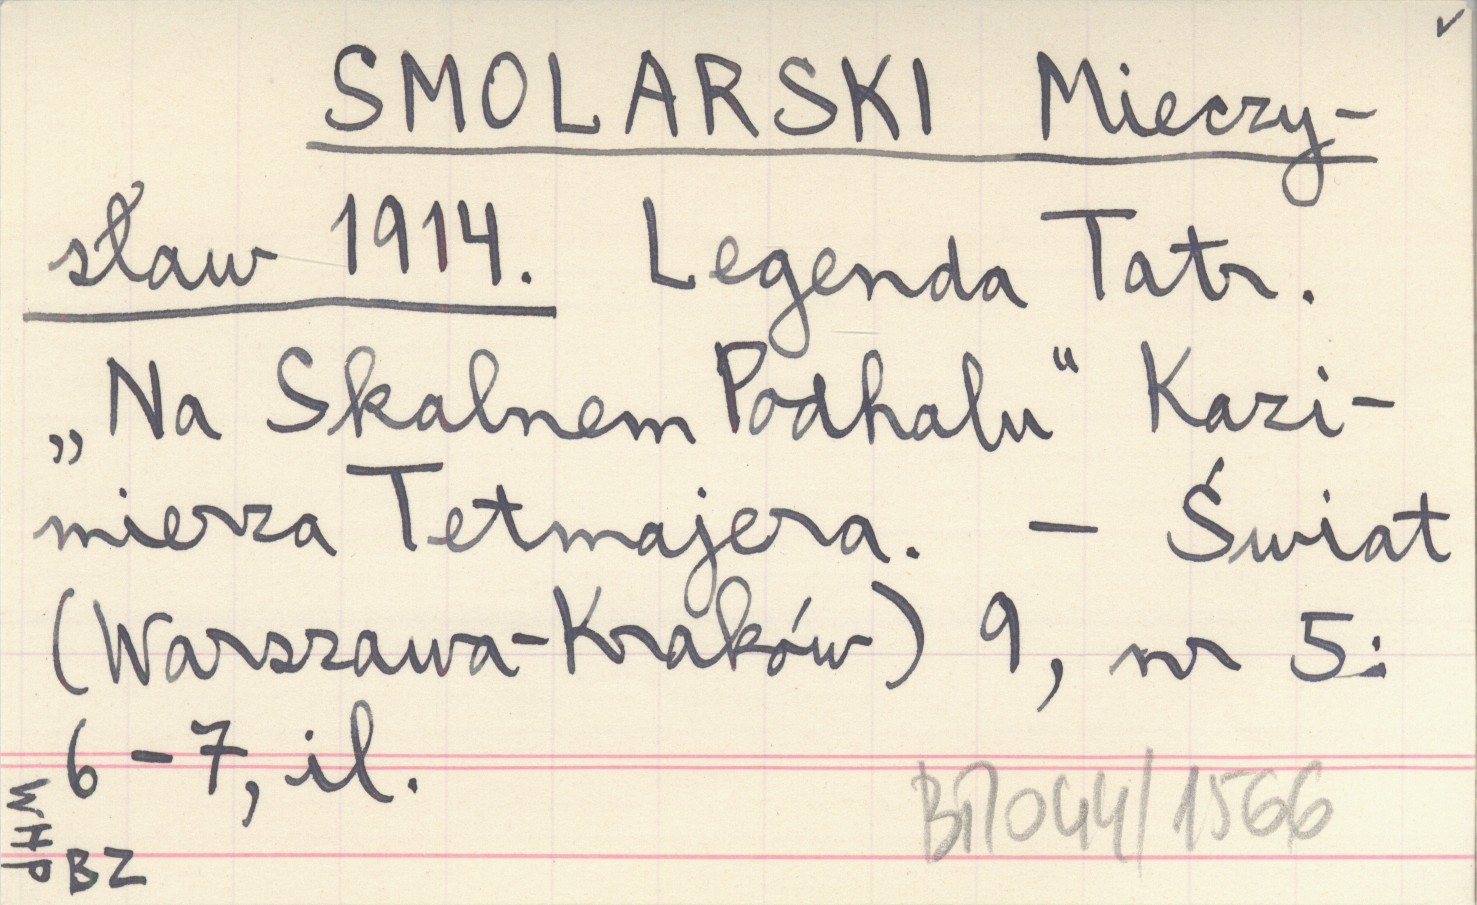 SMOLARSKI Mieczy-
sław 1914. Legenda Tatr.
„Na Skalnem Podhalu" Kazi-
mierza Tetmajera. – Świat
(Warszawa-Kraków) 9, nr 5:
6-7, il.
WHP
BZ
/1566